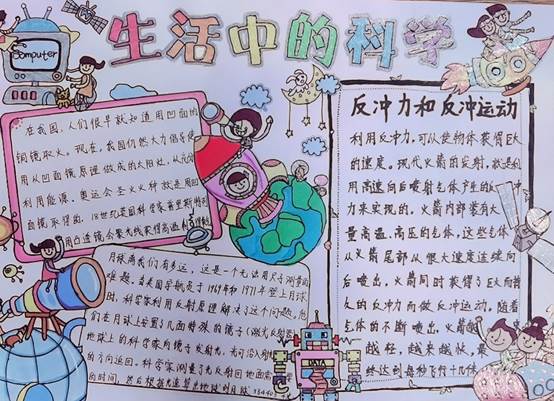 生活中的科学
Computer
在我国,人们很早就知道用凹面的
铜镜取火。现在,我国仍然大力倡导使
用从凹面镜原理做成的太阳灶,从而节
利用能源。奥运会圣火火种就是用凹
面镜取得的。18世纪法国科学家
用凸透镜会聚光线获得高温
月球离我们有多远,这是一个无法用尺子测量的
难题。当美国宇航员于1969年和1971年登上月球
时,科学家利用反射原理解决了这个问题,他
们在月球上安置了几面特殊的镜子(激光反射器
地球上的科学家向镜子发射光,光可沿入射
的方向返回。科学家测量了光反射回地面需
的时间,然后根据光速算出地球到月球38440
反冲力和反冲运动
利用反冲力,可以使物体获得巨大
的速度。现代火箭的发射,就是利
用高速向后喷射气体产生的反冲
力来实现的。火箭内部装有大
量高温、高压的气体,这些气体
从火箭尾部从很大速度连续向
后喷出,火箭同时获得了巨大而持
久的反冲力而做反冲运动。随着
气体的不断喷出,火箭越
越轻,越来越快,最
终达到每秒飞行十几
DATA